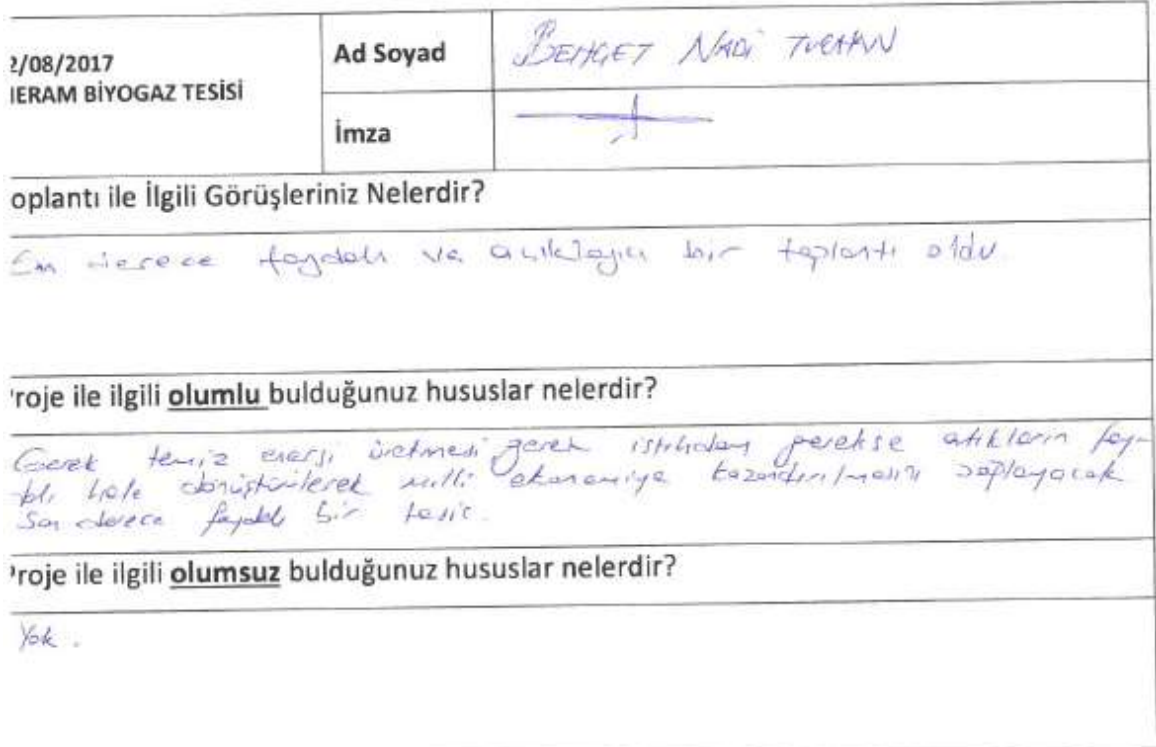 2/08/2017
IERAM BİYOGAZ TESİSİ
Ad Soyad
BEHÇET NADİ
İmza
oplantı ile İlgili Görüşleriniz Nelerdir?
derece faydalı ve açıklayıcı bir toplantı oldu.
roje ile ilgili olumlu bulduğunuz hususlar nelerdir?
Gerek temiz enerji üretmesi, gerek istihdam gerekse atıkların fay-
dalı hale dönüştürülerek milli ekonomiye kazandırılmasını sağlayacak
Son derece faydalı bir tesis.
roje ile ilgili olumsuz bulduğunuz hususlar nelerdir?
Yok.